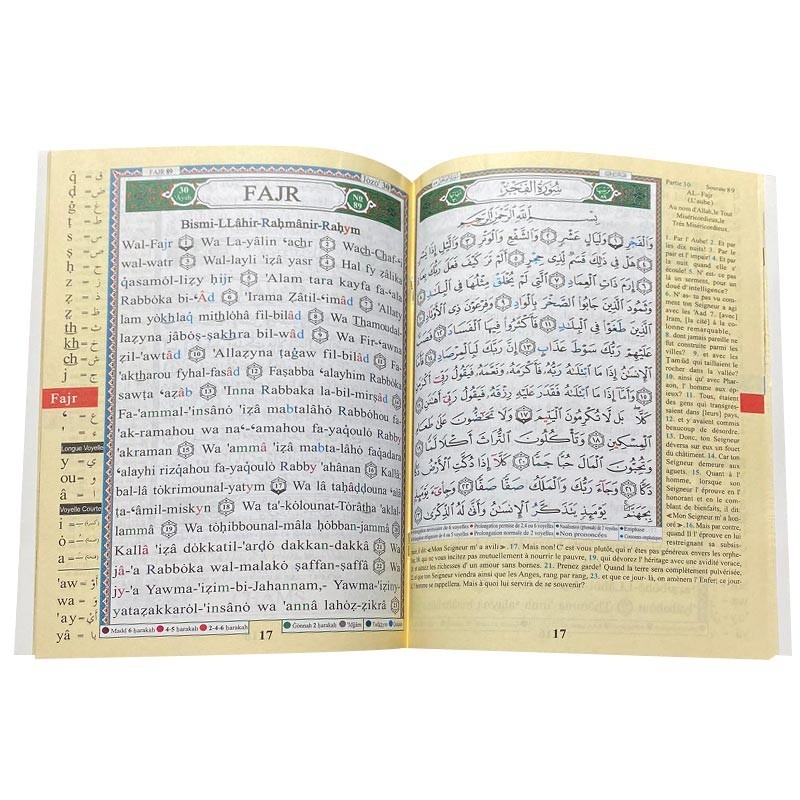 FAJR 89
Jòzú' 30
30
Ayah
FAJR
No
89
Bismi-LLâhir-Raḥmânir-Raḥym
Wal-Fajr 1 Wa La-yâlin 'achr 2 Wach-Chaf'i
wal-watr 3 Wal-layli 'iẓâ yasr 4 Hal fy ẓâlika
qasamól-liẓy ḥijr 5 'Alam tara kayfa fa-'ala
Rabbóka bi-'Âd 6 'Irama Ẓâtil-'imâd 7 'Allaty
lam yòkhlaq mithlóhâ fil-bilâd 8 Wa Thamoudal-
laẓyna jâbóṣ-ṣakhra bil-wâd 9 Wa Fir-'awna
ẓil-'awtâd 10 'Allaẓyna ṭaġaw fil-bilâd 11 Fa-
'aktharou fyhal-fasâd 12 Faṣabba 'alayhim Rabbóka
sawṭa 'aẓâb 13 'Inna Rabbaka la-bil-mirṣâd 14
Fa-'ammal-'insânó 'iẓâ mabtalâhó Rabbóhou fa-
'ak-ramahou wa na'-'amahou fa-yaqòulò Rabby
'akraman 15 Wa 'ammâ 'iẓâ mabta-lâhó faqadara
'alayhi rizqahou fa-yaqòulò Rabby 'ahânan 16 Kallâ
bal-lâ tókrimounal-yatym 17 Wa lâ taḥâḍḍouna 'alâ
ṭa-'âmil-miskyn 18 Wa ta'-kólounat-Tòrâtha 'aklal-
lammâ 19 Wa tóḥibbounal-mâla ḥóbban-jammâ 20
Kallâ 'iẓâ dòkkatil-'arḍó dakkan-dakkâ 21 Wa
jâ-'a Rabbóka wal-malakó ṣaffan-ṣaffâ 22 Wa
jy-'a Yawma-'iẓim-bi-Jahannam, Yawma-'iẓiny-
yataẓakkaról-'insânó wa 'annâ lahóẓ-ẓikrâ 23
Madd 6 ḥarakah 4-5 ḥarakah 2-4-6 ḥarakah Ġonnah 2 ḥarakah 'Idġâm Tafkhym
17
Fajr
Longue Voyelle
y = ي
ou = و
â = ا
Voyelle Courte
i
ó
a
'aw = أَوْ
wa = وَ
'ay = أَيْ
yâ = يا
سُورَةُ الفَجْرِ
بِسْمِ اللَّهِ الرَّحْمَٰنِ الرَّحِيمِ
وَالْفَجْرِ ١ وَلَيَالٍ عَشْرٍ ٢ وَالشَّفْعِ وَالْوَتْرِ ٣ وَاللَّيْلِ إِذَا يَسْرِ
٤ هَلْ فِي ذَٰلِكَ قَسَمٌ لِّذِي حِجْرٍ ٥ أَلَمْ تَرَ كَيْفَ فَعَلَ رَبُّكَ بِعَادٍ
٦ إِرَمَ ذَاتِ الْعِمَادِ ٧ الَّتِي لَمْ يُخْلَقْ مِثْلُهَا فِي الْبِلَادِ ٨
وَثَمُودَ الَّذِينَ جَابُوا الصَّخْرَ بِالْوَادِ ٩ وَفِرْعَوْنَ ذِي الْأَوْتَادِ ١٠
الَّذِينَ طَغَوْا فِي الْبِلَادِ ١١ فَأَكْثَرُوا فِيهَا الْفَسَادَ ١٢ فَصَبَّ
عَلَيْهِمْ رَبُّكَ سَوْطَ عَذَابٍ ١٣ إِنَّ رَبَّكَ لَبِالْمِرْصَادِ ١٤ فَأَمَّا
الْإِنسَانُ إِذَا مَا ابْتَلَاهُ رَبُّهُ فَأَكْرَمَهُ وَنَعَّمَهُ فَيَقُولُ رَبِّي أَكْرَمَنِ
١٥ وَأَمَّا إِذَا مَا ابْتَلَاهُ فَقَدَرَ عَلَيْهِ رِزْقَهُ فَيَقُولُ رَبِّي أَهَانَنِ ١٦
كَلَّا بَل لَّا تُكْرِمُونَ الْيَتِيمَ ١٧ وَلَا تَحَاضُّونَ عَلَىٰ طَعَامِ
الْمِسْكِينِ ١٨ وَتَأْكُلُونَ التُّرَاثَ أَكْلًا لَّمًّا ١٩
وَتُحِبُّونَ الْمَالَ حُبًّا جَمًّا ٢٠ كَلَّا إِذَا دُكَّتِ الْأَرْضُ دَكًّا
دَكًّا ٢١ وَجَاءَ رَبُّكَ وَالْمَلَكُ صَفًّا صَفًّا ٢٢ وَجِيءَ يَوْمَئِذٍ
بِجَهَنَّمَ يَوْمَئِذٍ يَتَذَكَّرُ الْإِنسَانُ وَأَنَّىٰ لَهُ الذِّكْرَىٰ ٢٣
Prolongation permise de 2,4 ou 6 voyelles
Prolongation normale de 2 voyelles Non prononcées
Partie 30 Sourate 89
AL- Fajr
(L'aube)
Au nom d'Allah, le Tout
Miséricordieux, le
Très Miséricordieux.
1. Par l' Aube! 2. Et par
les dix nuits! 3. Par le
pair et l' impair! 4. Et par
la nuit, quand elle s'
écoule! 5. N' est- ce pas
là un serment, pour un
doué d' intelligence?
6. N' as- tu pas vu com-
ment ton Seigneur a agi
avec les 'Aad 7. [avec]
Iram, [la cité] à la co-
lonne remarquable,
8. dont jamais pareille ne
fut construite parmi les
villes? 9. et avec les
Ṭamūd qui taillaient le
rocher dans la vallée?
10. ainsi qu' avec Phar-
aon, l' homme aux épieux?
11. Tous, étaient des
gens qui transgres-
saient dans [leurs] pays,
12. et y avaient commis
beaucoup de désordre.
13. Donc, ton Seigneur
déversa sur eux un fouet
du châtiment. 14. Car ton
Seigneur demeure aux
aguets. 15. Quant à l'
homme, lorsque son
Seigneur l' éprouve en l'
honorant et en le comb-
lant de bienfaits, il dit:
«Mon Seigneur m' a hon-
oré». 16. Mais par contre,
quand Il l' éprouve en lui
restreignant sa subsis-
tance, il dit: «Mon Seigneur m' a avili». 17. Mais non! C' est vous plutôt, qui n' êtes pas généreux envers les orphe-
lins, 18. qui ne vous incitez pas mutuellement à nourrir le pauvre, 19. qui dévorez l' héritage avec une avidité vorace,
20. et aimez les richesses d' un amour sans bornes. 21. Prenez garde! Quand la terre sera complètement pulvérisée,
22. et que ton Seigneur viendra ainsi que les Anges, rang par rang, 23. et que ce jour- là, on amènera l' Enfer; ce jour-
là, l' homme se rappellera. Mais à quoi lui servira de se souvenir?
17